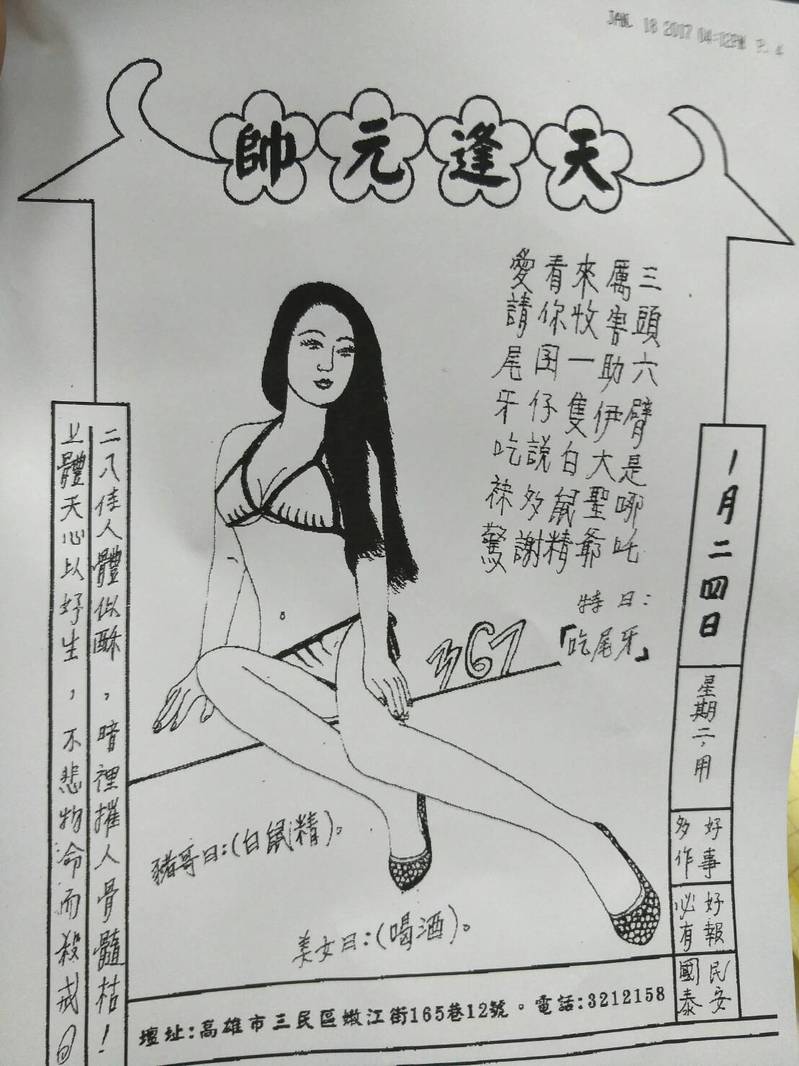 JAN. 18 2017 04:12PM P. 4
天逢元帥
三頭六臂是哪吒
厲害助伊大聖爺
來牧一隻白鼠精
看你囝仔說多謝
愛請尾牙吃祙驚
特曰:
「吃尾牙」
1月二四日
星期二,用
好事多作
好報必有
民安國泰
367
豬哥曰:(白鼠精)。
美女曰:(喝酒)。
二八佳人體似酥,暗裡摧人骨髓枯!
上體天心以好生,不悲物命而殺戒
壇址:高雄市三民區嫩江街165巷12號。電話:3212158